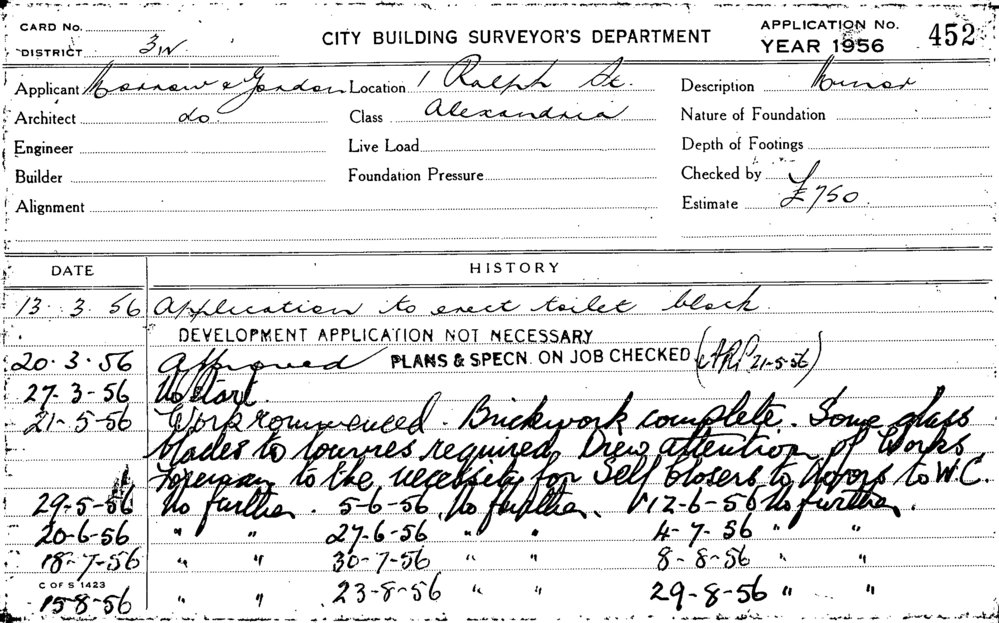 CARD No.
DISTRICT 3W
CITY BUILDING SURVEYOR'S DEPARTMENT
APPLICATION No.
YEAR 1956 452
Applicant Morrow & Gordon Location 1 Ralph St. Description Minor
Architect do Class Alexandria Nature of Foundation
Engineer Live Load Depth of Footings
Builder Foundation Pressure Checked by
Alignment Estimate £750
DATE HISTORY
13.3.56 Application to erect toilet block.
DEVELOPMENT APPLICATION NOT NECESSARY
20.3.56 Approved PLANS & SPECN. ON JOB CHECKED (ARP 21-5-56)
27-3-56 No start.
21-5-56 Work commenced. Brickwork complete. Some glass
blades to louvres required. Drew attention of Works
Foreman to the necessity for Self Closers to doors to W.C.
29-5-56 No further. 5-6-56 No further. 12-6-56 No further.
20-6-56 " " 27-6-56 " " 4-7-56 " "
18-7-56 " " 30-7-56 " " 8-8-56 " "
C OF S 1423
15-8-56 " " 23-8-56 " " 29-8-56 " "